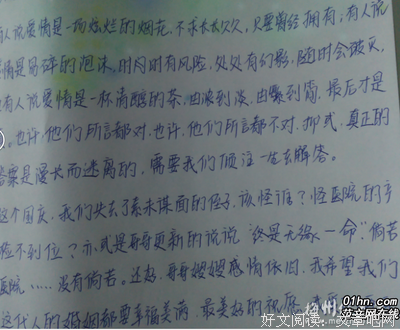 有人说爱情是一场炫烂的烟花,不求长长久久,只要曾经拥有;有人说
爱情是易碎的泡沫,时时时有风险,处处有幻影,随时会破灭,
也有人说爱情是一杯清醇的茶,由浓到淡,由繁到简,最后才是
。也许,他们所言都对,也许,他们所言都不对,抑或,真正的
答案是漫长而遥离的,需要我们倾注一生去解答。
这个国庆,我们失去了素未谋面的侄子,该怪谁?怪医院的
检不到位?亦或是哥哥更新的说说"终是无缘一命",倘若
医院……没有倘若。还好,哥哥嫂嫂感情依旧,我希望我们
这代人的婚姻都要幸福美满,最美好的祝愿
好文阅读:文章吧网
01hn.com